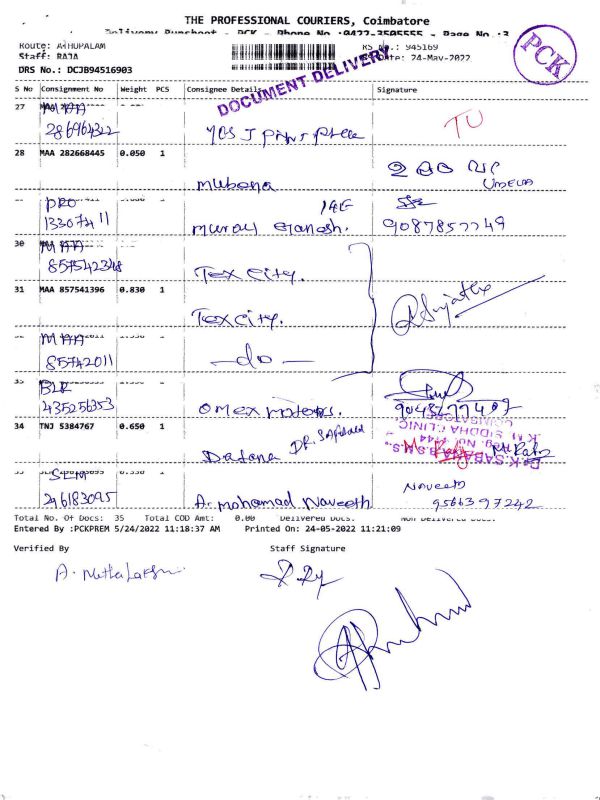 THE PROFESSIONAL COURIERS, Coimbatore
Delivery Runsheet - PCK - Phone No :0422-3505555 - Page No :3
Route: ATHUPALAM
Staff: RAJA
DRS No.: DCJB94516903
RS No.: 945169
Date: 24-May-2022
DOCUMENT DELIVERY
PCK
S No Consignment No Weight PCS Consignee Details Signature
27 MAA
286964322
TU
28 MAA 282668445 0.050 1
Mubena
PRO
133074 11
Murali Ganesh.
9087857749
30 MAA
857542348
Tex city.
31 MAA 857541396 0.830 1
Tex city.
MAA
85742011
- do -
BLR
435256353
Omex motors.
34 TNJ 5384767 0.650 1
K.M SIDDHA CLINIC
COIMBATORE
SLM
246183095
A. mohamad Naveeth
Naveeth
9566397242
Total No. Of Docs: 35 Total COD Amt: 0.00 Delivered Docs: Non Delivered Docs:
Entered By :PCKPREM 5/24/2022 11:18:37 AM Printed On: 24-05-2022 11:21:09
Verified By Staff Signature